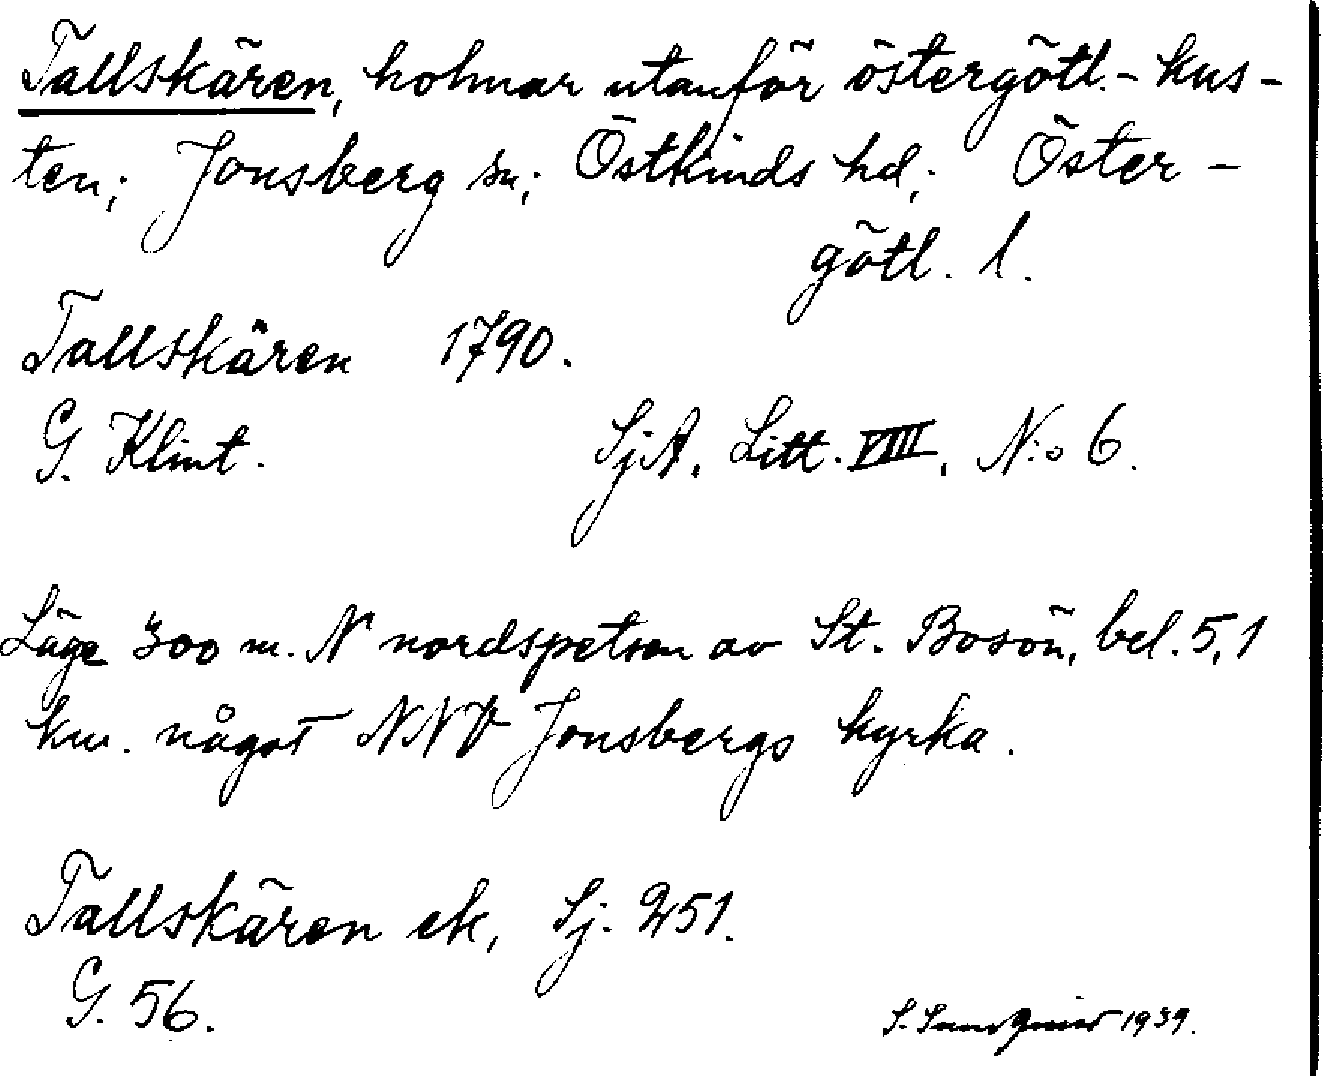 Tallskären, holmar utanför östergötl.-kus-
ten; Jonsberg sn; Östkinds hd; Öster-
götl. l.
Tallskären 1790.
G. Klint. SjA, Litt. VIII, N:o 6.
Läge 300 m. N nordspetsen av St. Bosön, bel. 5,1
km. något NNV Jonsbergs kyrka.
Tallskären ek, Sj. 251.
G. 56.
S. 1939.